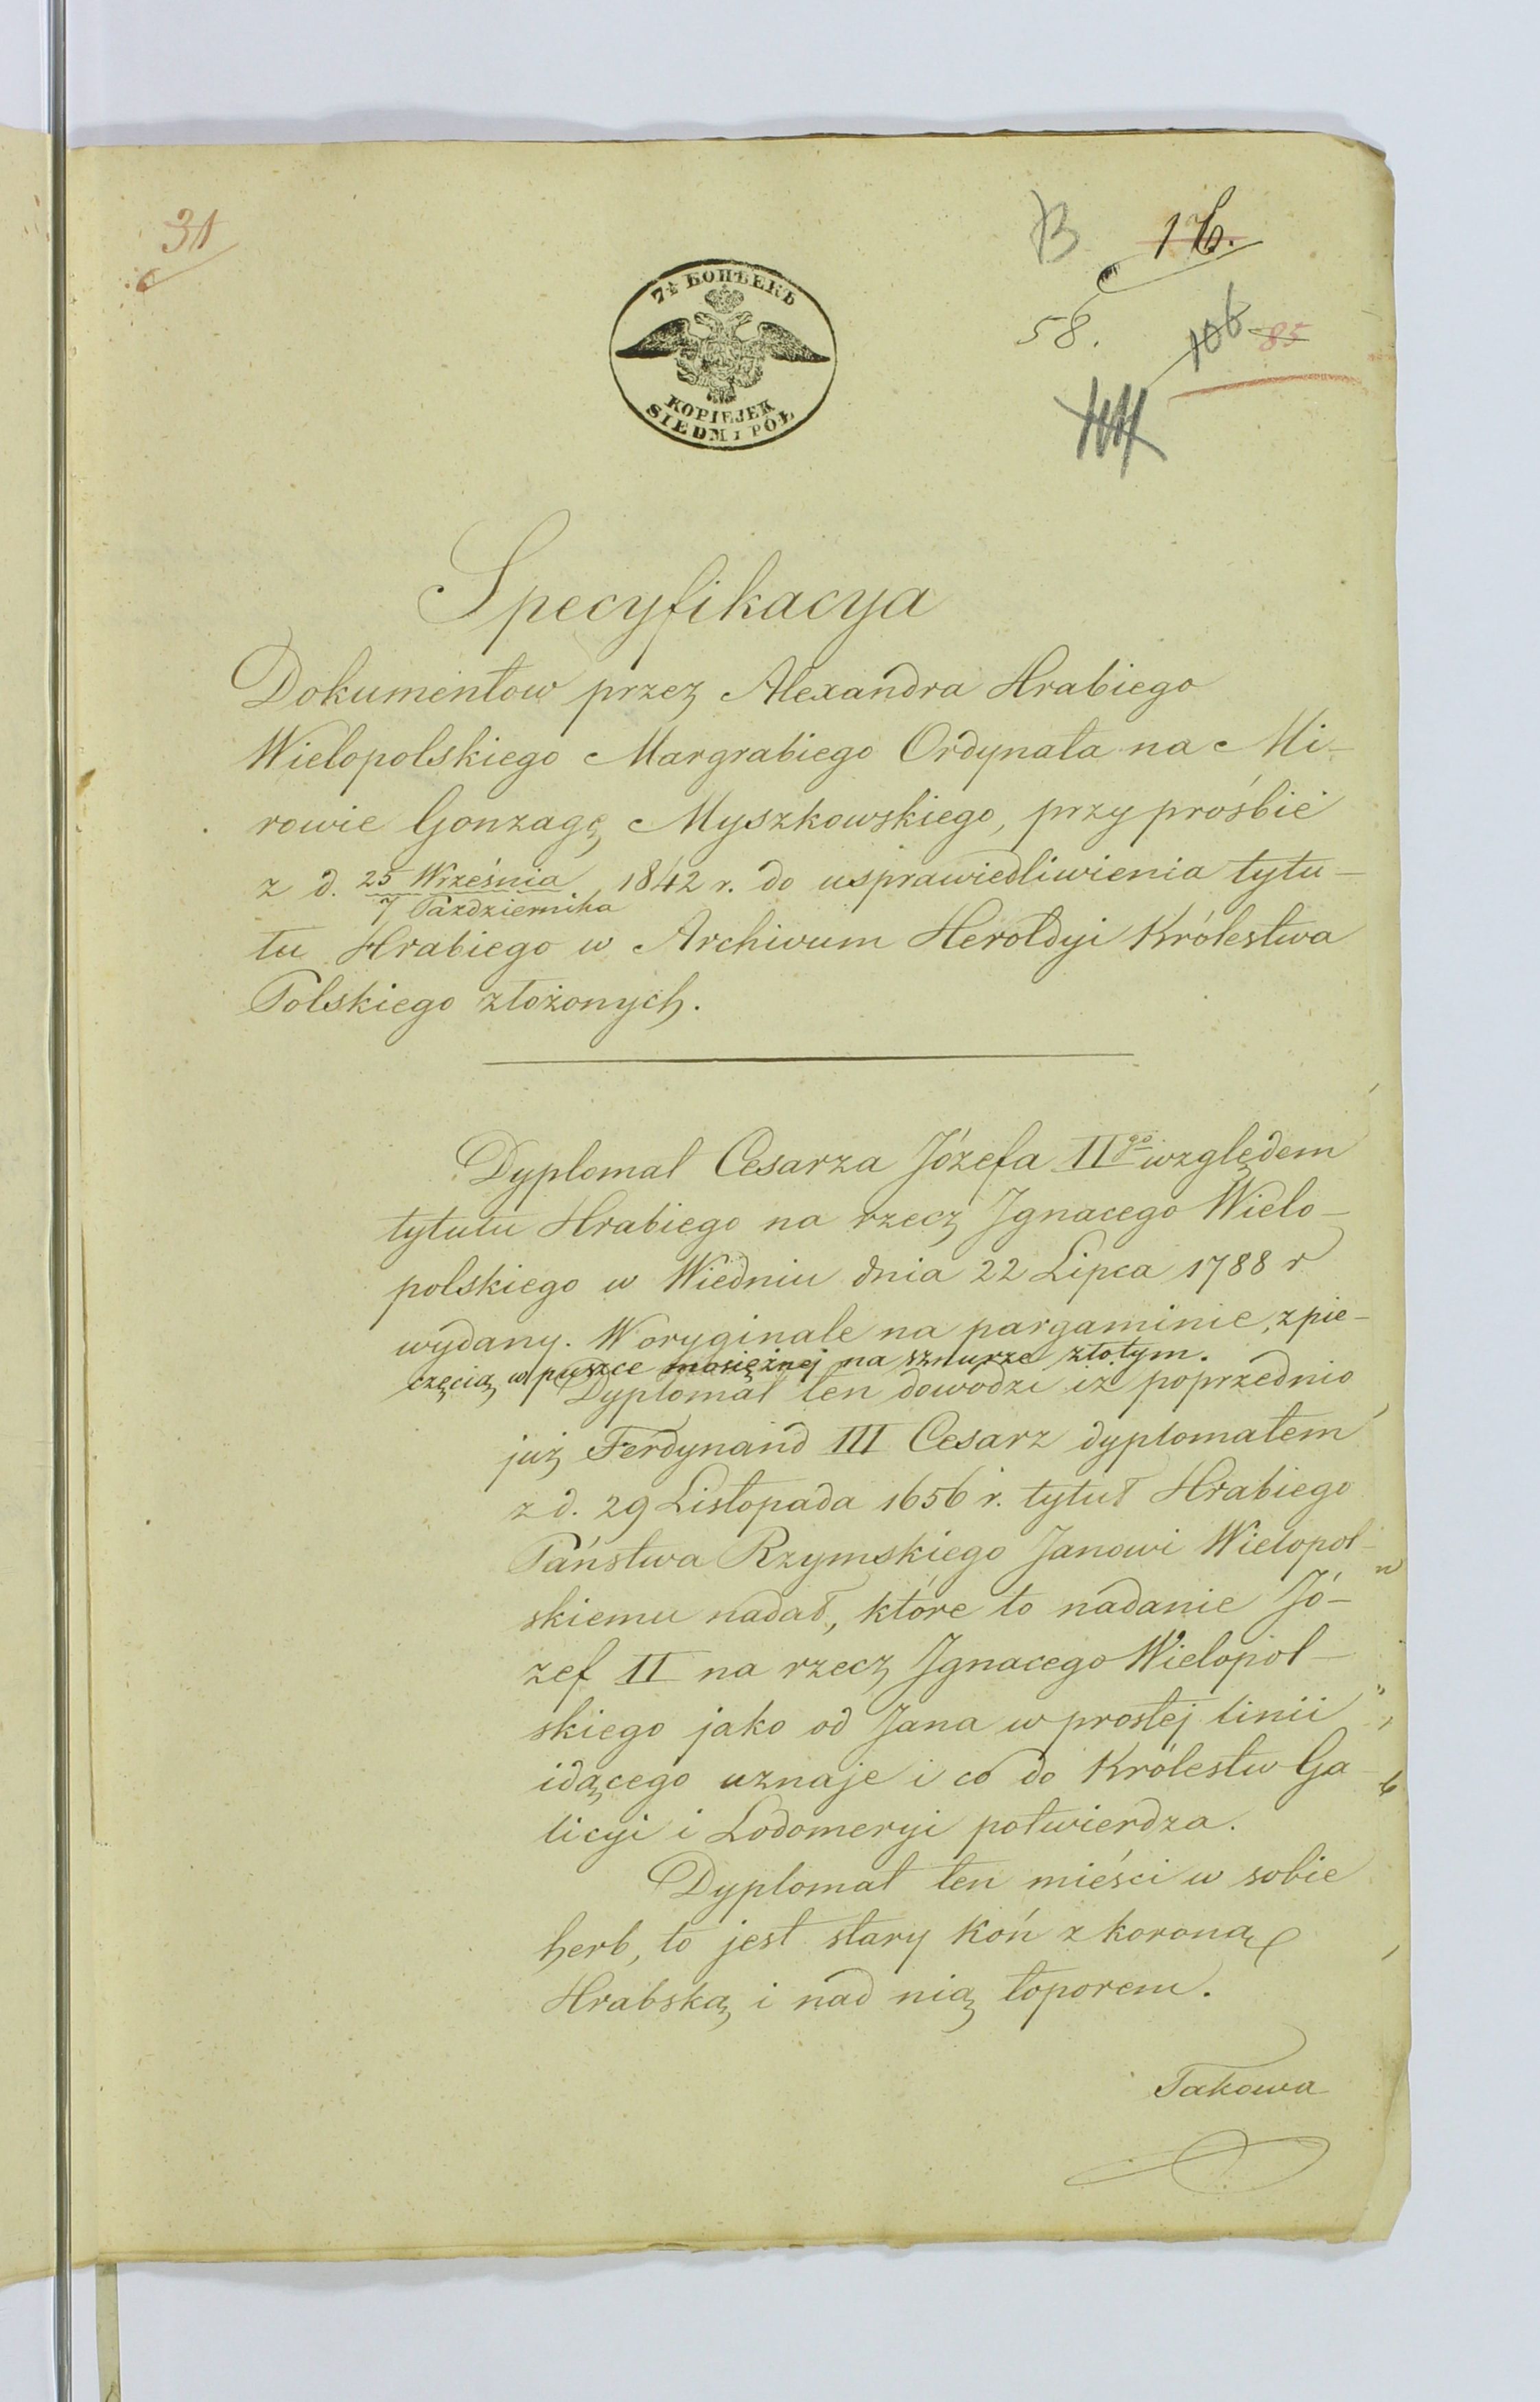 31
B 16.
58. 106 85
7½ КОПѢЕКЪ
KOPIEJEK
SIEDM I PÓŁ
Specyfikacya
Dokumentow przez Alexandra Hrabiego
Wielopolskiego Margrabiego Ordynata na Mi-
rowie Gonzagę Myszkowskiego, przy prośbie
z d. 25 Września / 7 Października 1842 r. do usprawiedliwienia tytu-
łu Hrabiego w Archiwum Heroldyi Królestwa
Polskiego złożonych.
Dyplomat Cesarza Józefa IIgo względem
tytułu Hrabiego na rzecz Ignacego Wielo-
polskiego w Wiedniu dnia 22 Lipca 1788 r
wydany. W oryginale na pargaminie, z pie-
częcią w puszce mosiężnej na sznurze złotym.
Dyplomat ten dowodzi iż poprzednio
już Ferdynand III Cesarz dyplomatem
z d. 29 Listopada 1656 r. tytuł Hrabiego
Państwa Rzymskiego Janowi Wielopol-
skiemu nadał, które to nadanie Jó-
zef II na rzecz Ignacego Wielopol-
skiego jako od Jana w prostej linii
idącego uznaje i co do Królestw Ga-
licyi i Lodomeryi potwierdza.
Dyplomat ten mieści w sobie
herb, to jest stary Koń z koroną
Hrabską i nad nią toporem.
Takowa